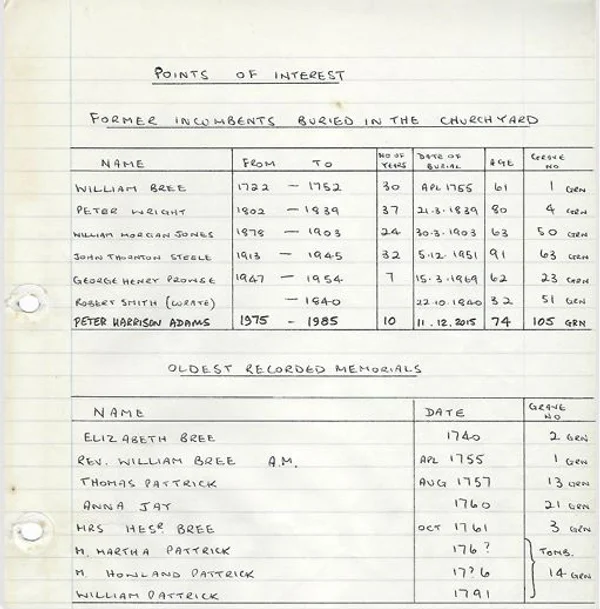 POINTS OF INTEREST
FORMER INCUMBENTS BURIED IN THE CHURCHYARD
NAME FROM TO NO OF YEARS DATE OF BURIAL AGE GRAVE NO
WILLIAM BREE 1722 - 1752 30 APL 1755 61 1 GRN
PETER WRIGHT 1802 - 1839 37 21.3.1839 80 4 GRN
WILLIAM MORGAN JONES 1878 - 1903 24 30.3.1903 63 50 GRN
JOHN THORNTON STEELE 1913 - 1945 32 5.12.1951 91 63 GRN
GEORGE HENRY PROWSE 1947 - 1954 7 15.3.1969 62 23 GRN
ROBERT SMITH (CURATE) - 1840 22.10.1840 32 51 GRN
PETER HARRISON ADAMS 1975 - 1985 10 11.12.2015 74 105 GRN
OLDEST RECORDED MEMORIALS
NAME DATE GRAVE NO
ELIZABETH BREE 1740 2 GRN
REV. WILLIAM BREE A.M. APL 1755 1 GRN
THOMAS PATTRICK AUG 1757 13 GRN
ANNA JAY 1760 21 GRN
MRS HESR. BREE OCT 1761 3 GRN
M. MARTHA PATTRICK 176? TOMB.
M. HOWLAND PATTRICK 17?6 14 GRN
WILLIAM PATTRICK 1791